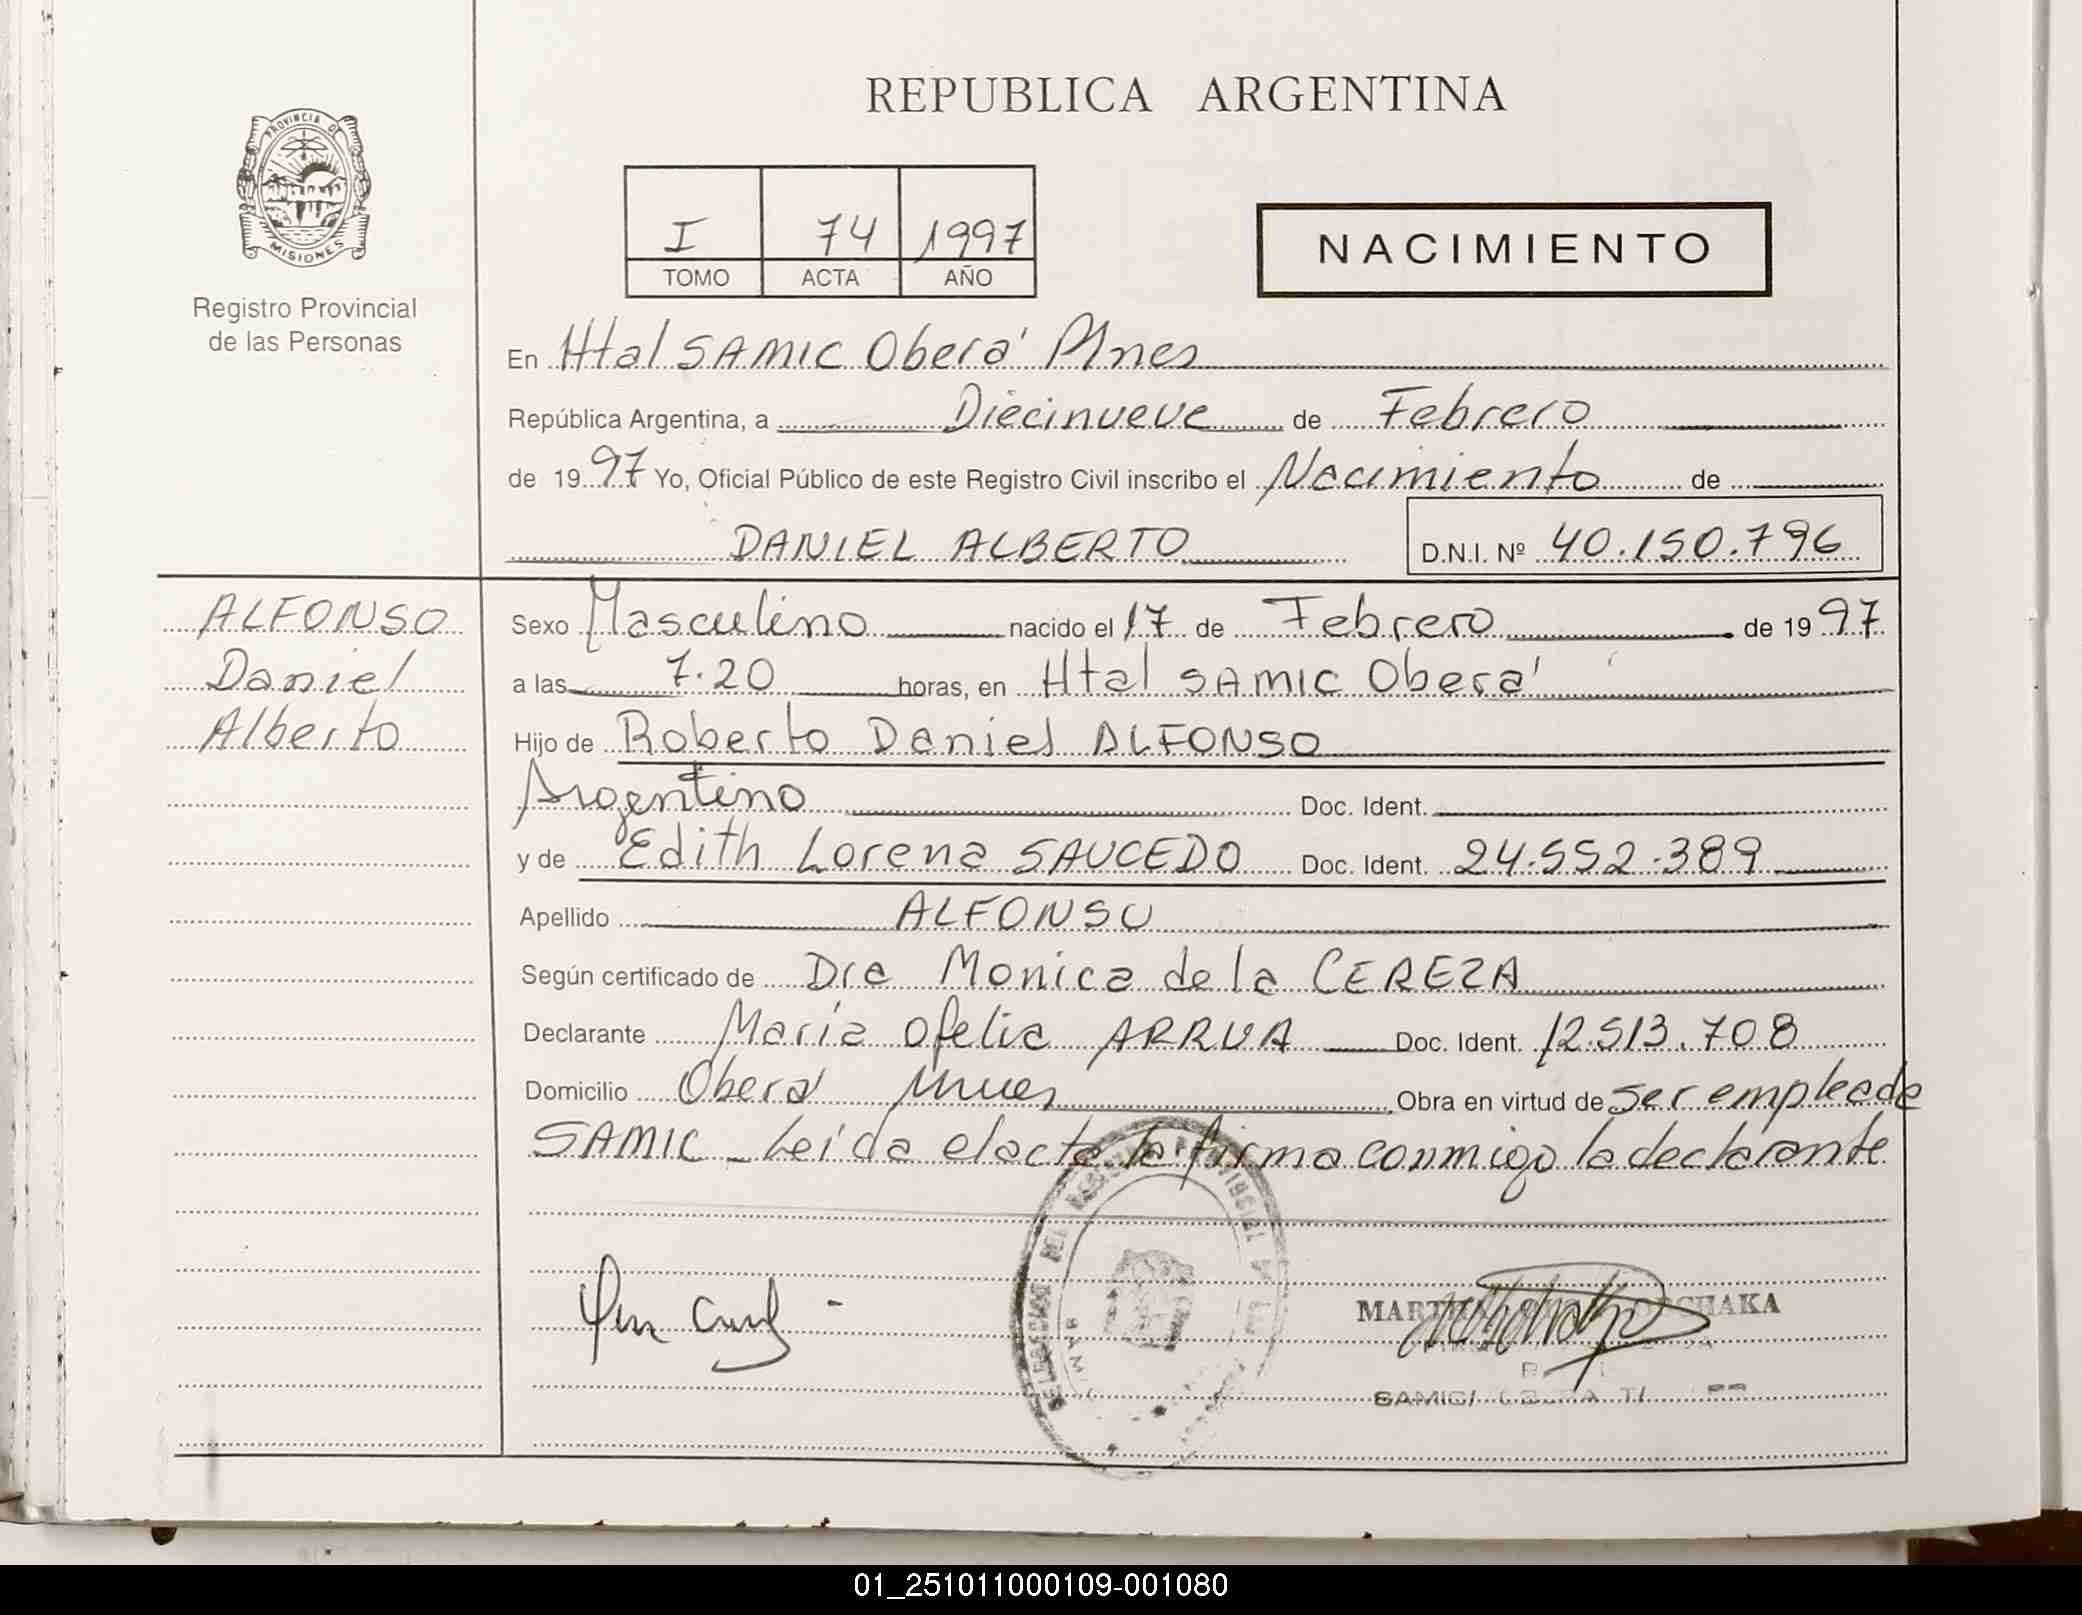 REPUBLICA ARGENTINA
PROVINCIA DE
MISIONES
Registro Provincial
de las Personas
I 74 1997
TOMO ACTA AÑO
NACIMIENTO
En Htal SAMIC Oberá Mnes
República Argentina, a Diecinueve de Febrero
de 1997 Yo, Oficial Público de este Registro Civil inscribo el Nacimiento de
DANIEL ALBERTO D.N.I. Nº 40.150.796
ALFONSO
Daniel
Alberto
Sexo Masculino nacido el 17 de Febrero de 1997
a las 7.20 horas, en Htal SAMIC Oberá
Hijo de Roberto Daniel ALFONSO
Argentino Doc. Ident.
y de Edith Lorena SAUCEDO Doc. Ident. 24.552.389
Apellido ALFONSO
Según certificado de Dra Monica de la CEREZA
Declarante María Ofelia ARRUA Doc. Ident. 12.513.708
Domicilio Oberá Mnes Obra en virtud de ser empleada
SAMIC - Leída el acta la firma conmigo la declarante
SAMIC
01_251011000109-001080